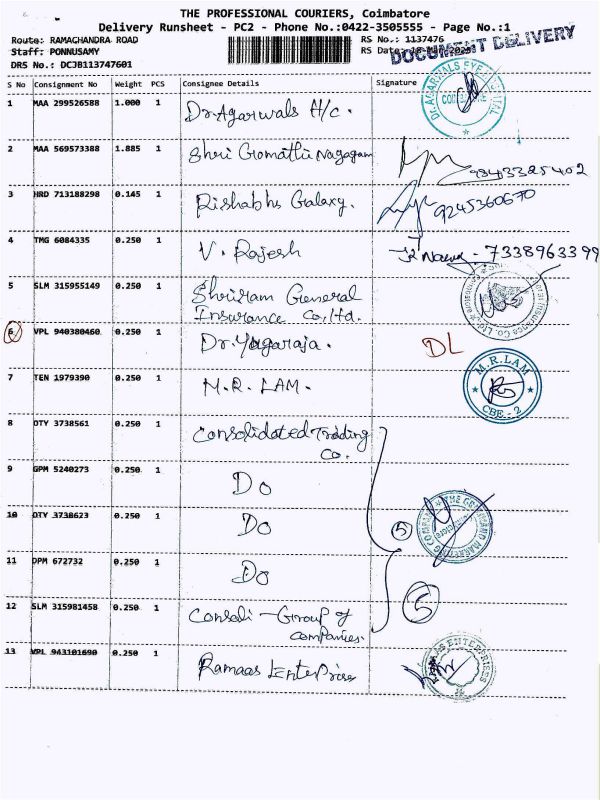 THE PROFESSIONAL COURIERS, Coimbatore
Delivery Runsheet - PC2 - Phone No.:0422-3505555 - Page No.:1
Route: RAMACHANDRA ROAD RS No.: 1137476
Staff: PONNUSAMY RS Date:
DOCUMENT DELIVERY
DRS No.: DCJB113747601
S No Consignment No Weight PCS Consignee Details Signature
1 MAA 299526588 1.000 1 Dr.Agarwals H/c.
DR.AGARWALS EYE HOSPITAL
2 MAA 569573388 1.885 1 Shri Gomathi Nagagam 9843325402
3 HRD 713188298 0.145 1 Rishabhs Galaxy. 9245360670
4 TMG 6084335 0.250 1 V. Rajesh 7338963399
5 SLM 315955149 0.250 1 Shriram General
Insurance Co,ltd.
6 VPL 940380460 0.250 1 Dr.Yagaraja. DL
7 TEN 1979390 0.250 1 M.R. LAM. M.R.LAM
CBE - 2
8 DTY 3738561 0.250 1 Consolidated Trading
Co.
9 GPM 5240273 0.250 1 Do
10 DTY 3738623 0.250 1 Do 5
11 DPM 672732 0.250 1 Do
12 SLM 315981458 0.250 1 Consoli - Group of
Companies.
13 VPL 943101690 0.250 1 Ramaas Enterprise
RAMAAS ENTERPRISES